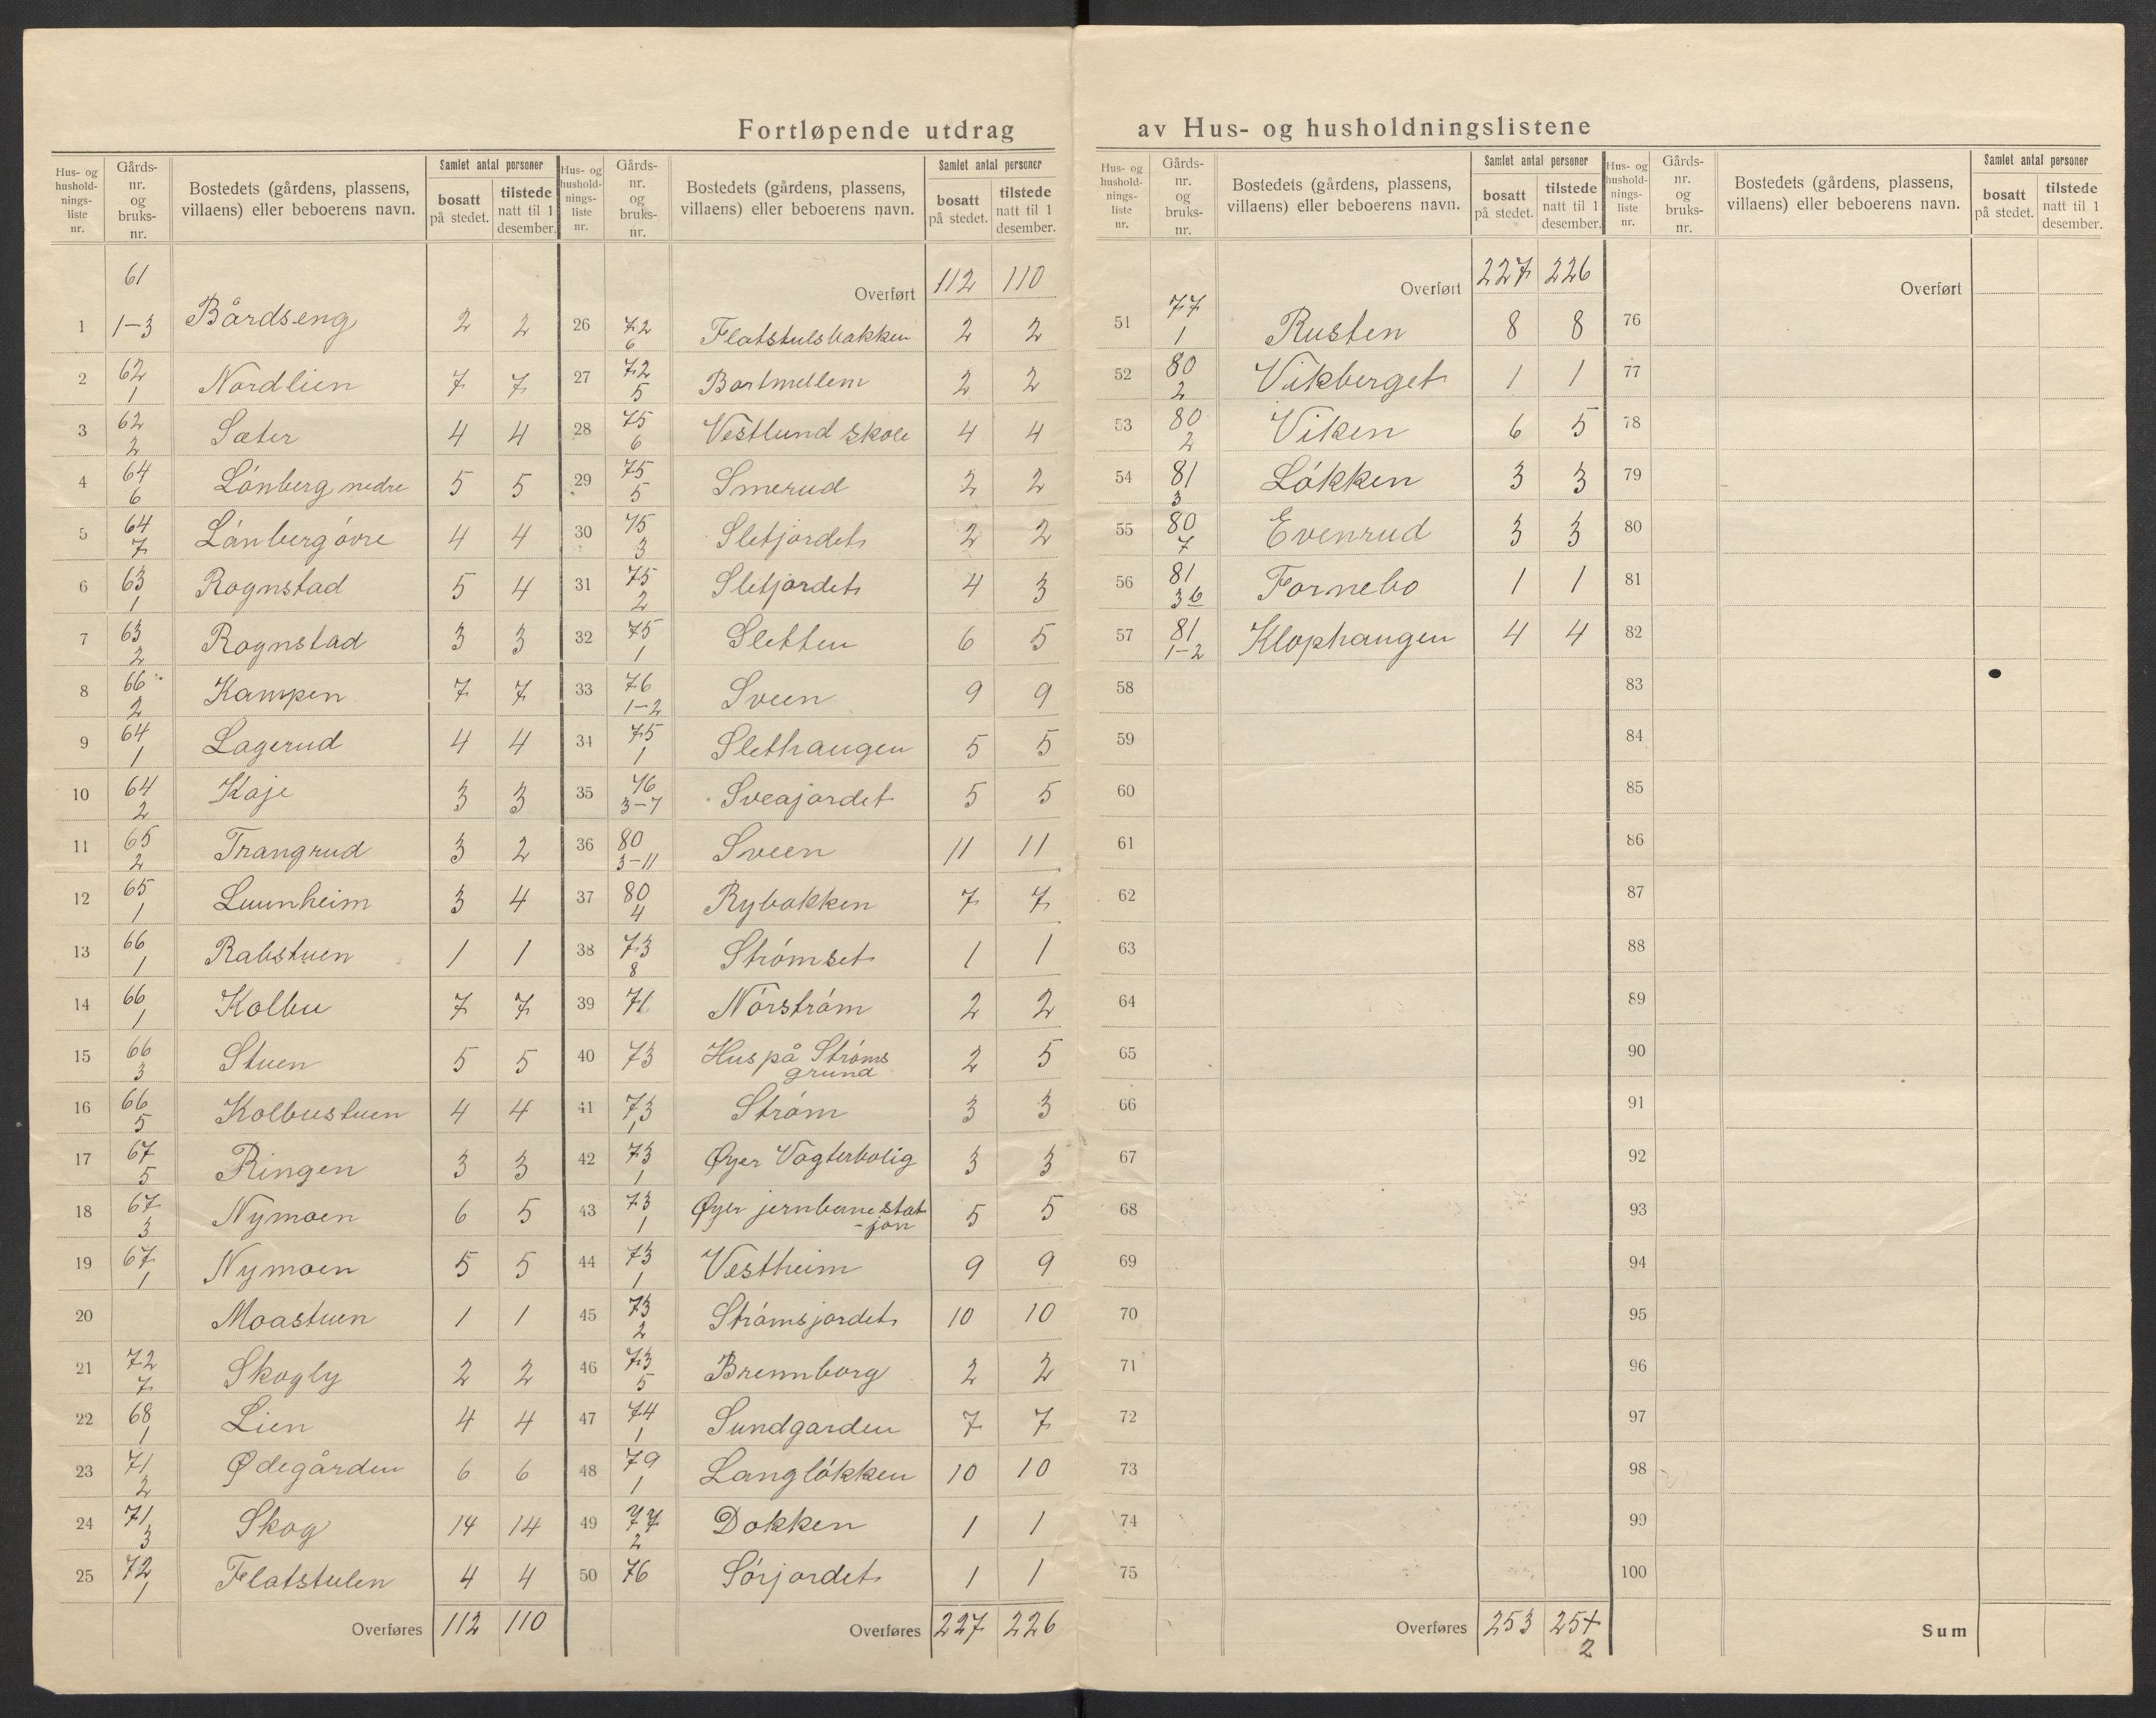 Fortløpende utdrag av Hus- og husholdningslistene
Hus- og hushold-nings-liste nr. Gårds-nr. og bruks-nr. Bostedets (gårdens, plassens, villaens) eller beboerens navn. Samlet antal personer bosatt på stedet. tilstede natt til 1 desember.
61
1 1-3 Bårdseng 2 2
2 62 1 Nordlien 7 7
3 62 2 Sæter 4 4
4 64 6 Lónberg nedre 5 5
5 64 7 Lónberg óvre 4 4
6 63 1 Rognstad 5 4
7 63 2 Rognstad 3 3
8 66 2 Kampen 7 7
9 64 1 Lagerud 4 4
10 64 2 Kaje 3 3
11 65 2 Trangrud 3 2
12 65 1 Luunheim 3 4
13 66 1 Rabstuen 1 1
14 66 1 Kolbu 7 7
15 66 3 Stuen 5 5
16 66 5 Kolbustuen 4 4
17 67 5 Ringen 3 3
18 67 3 Nymoen 6 5
19 67 1 Nymoen 5 5
20 Moastuen 1 1
21 72 7 Skogly 2 2
22 68 1 Lien 4 4
23 71 2 Ødegården 6 6
24 71 3 Skog 14 14
25 72 1 Flatstulen 4 4
Overføres 112 110
Hus- og hushold-nings-liste nr. Gårds-nr. og bruks-nr. Bostedets (gårdens, plassens, villaens) eller beboerens navn. Samlet antal personer bosatt på stedet. tilstede natt til 1 desember.
Overført 112 110
26 72 6 Flatstulsbakken 2 2
27 72 5 Bortmellem 2 2
28 75 6 Vestlund skole 4 4
29 75 5 Smerud 2 2
30 75 3 Sletjordet 2 2
31 75 2 Sletjordet 4 3
32 75 1 Sletten 6 5
33 76 1-2 Sveen 9 9
34 75 1 Slethaugen 5 5
35 76 3-7 Sveajordet 5 5
36 80 3-11 Sveen 11 11
37 80 4 Rybakken 7 7
38 73 8 Strómset 1 1
39 71 Nórstróm 2 2
40 73 Hus på Stróms grund 2 5
41 73 1 Stróm 3 3
42 73 1 Øyer Vogterbolig 3 3
43 73 1 Øyer jernbanestat-jon 5 5
44 73 1 Vestheim 9 9
45 73 2 Strómsjordet 10 10
46 73 5 Brennborg 2 2
47 74 1 Sundgarden 7 7
48 79 1 Langlókken 10 10
49 77 2 Dokken 1 1
50 76 Sórjordet 1 1
Overføres 227 226
Hus- og hushold-nings-liste nr. Gårds-nr. og bruks-nr. Bostedets (gårdens, plassens, villaens) eller beboerens navn. Samlet antal personer bosatt på stedet. tilstede natt til 1 desember.
Overført 227 226
51 77 1 Rusten 8 8
52 80 2 Vikberget 1 1
53 80 2 Viken 6 5
54 81 3 Lókken 3 3
55 80 7 Evenrud 3 3
56 81 36 Fornebo 1 1
57 81 1-2 Klophaugen 4 4
58
59
60
61
62
63
64
65
66
67
68
69
70
71
72
73
74
75
Overføres 253 25+ 2
Hus- og hushold-nings-liste nr. Gårds-nr. og bruks-nr. Bostedets (gårdens, plassens, villaens) eller beboerens navn. Samlet antal personer bosatt på stedet. tilstede natt til 1 desember.
Overført
76
77
78
79
80
81
82
83
84
85
86
87
88
89
90
91
92
93
94
95
96
97
98
99
100
Sum